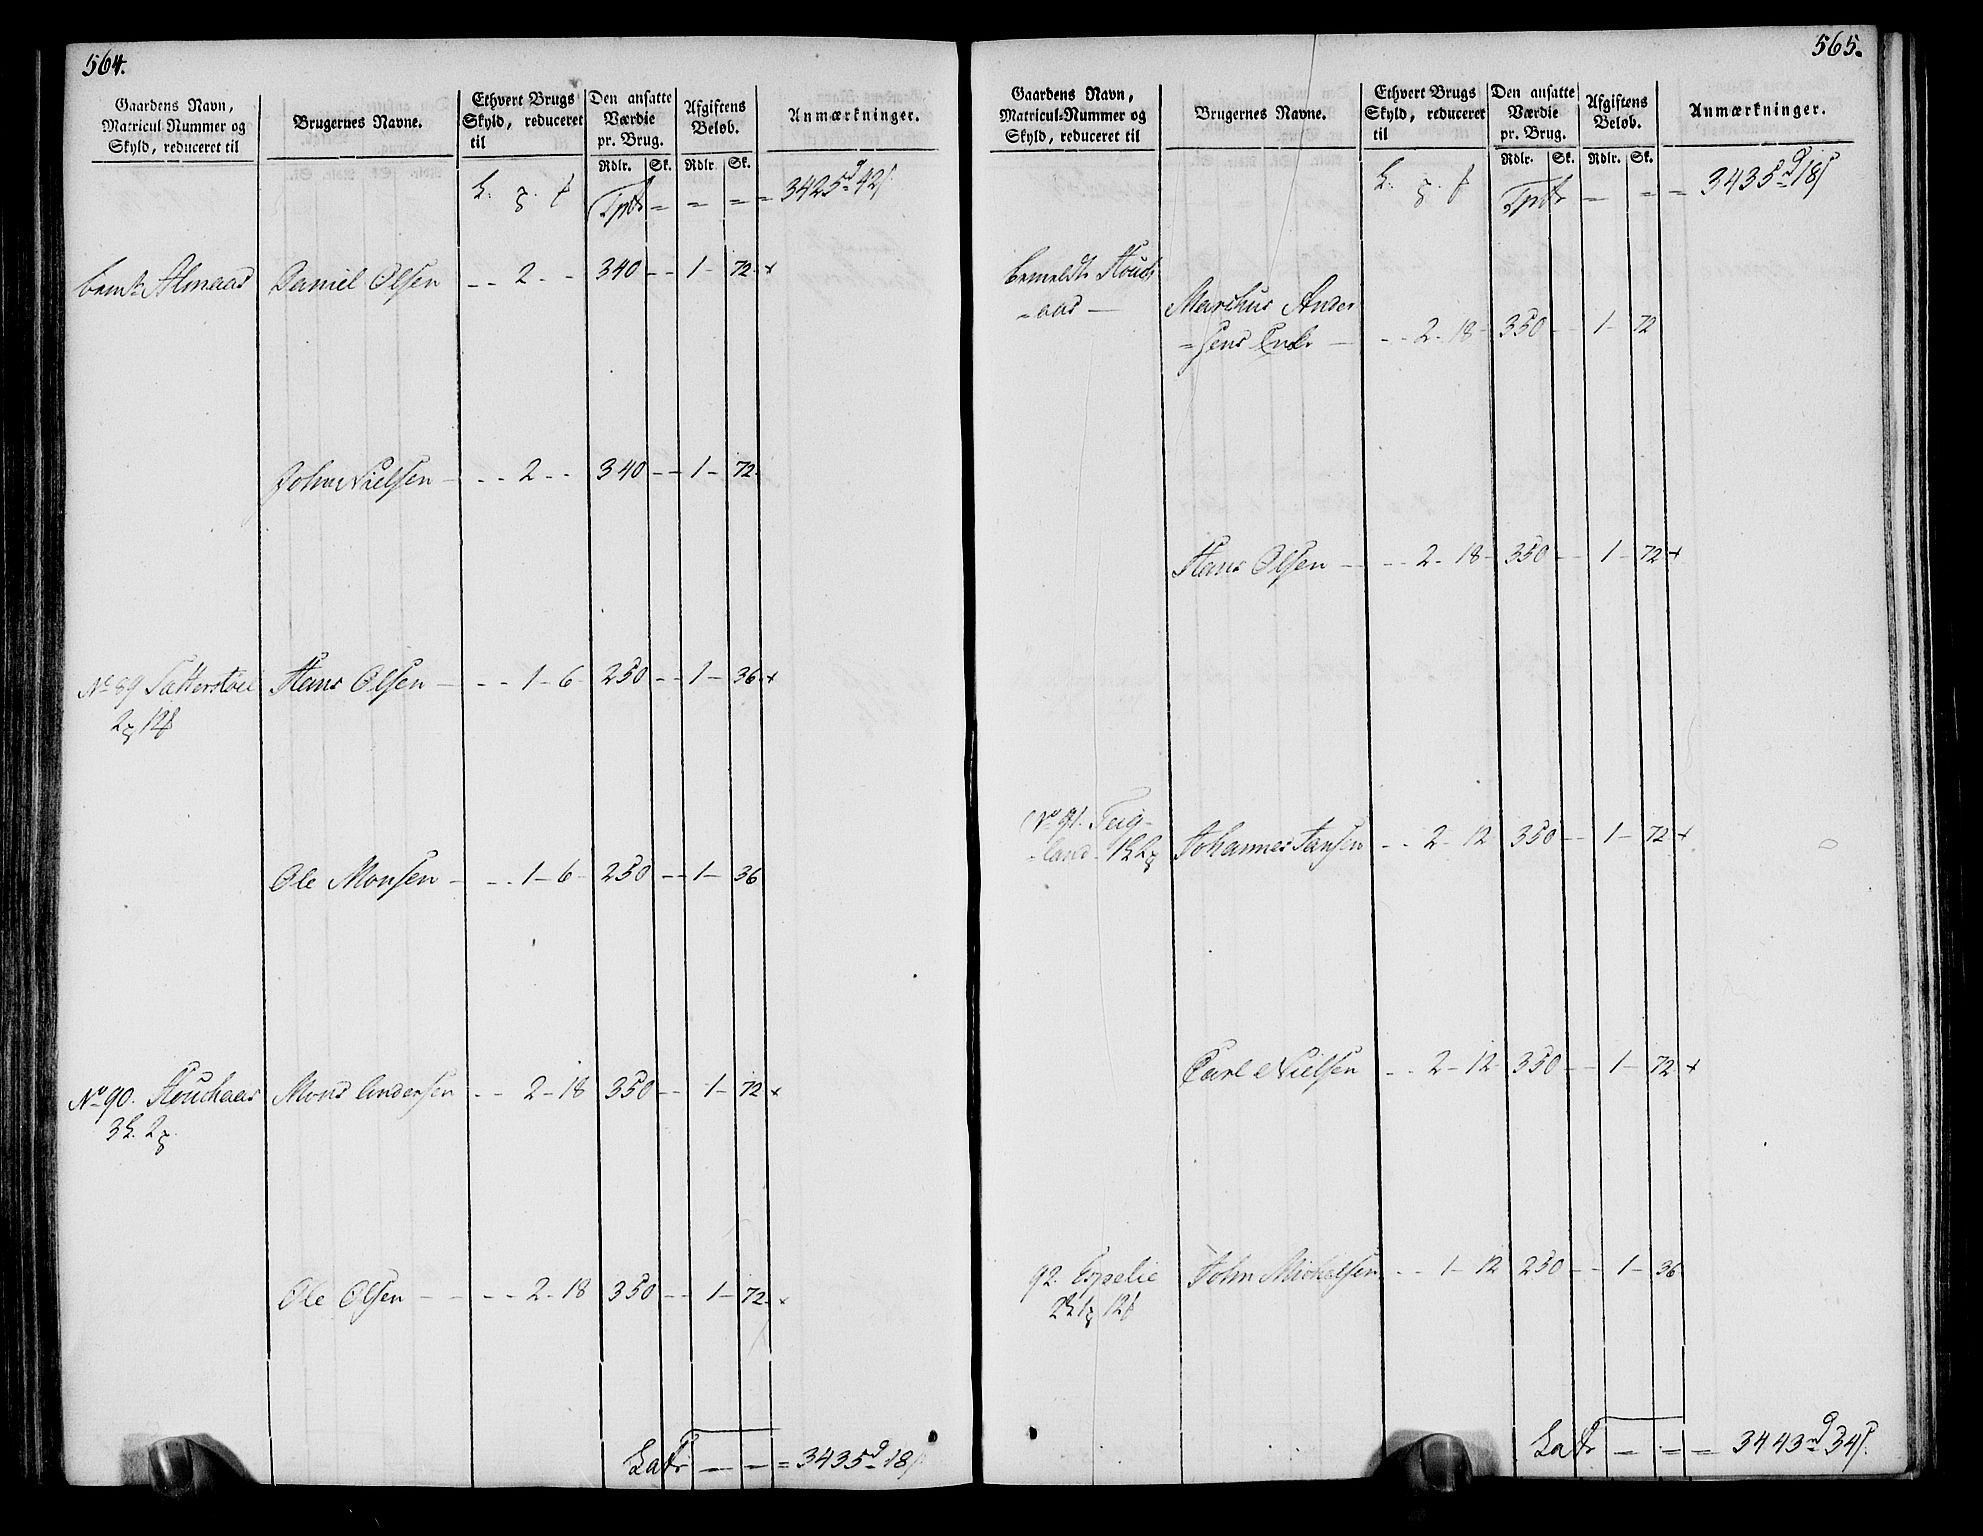 564.
Gaardens Navn,
Matricul-Nummer og
Skyld, reduceret til
Brugernes Navne.
Ethvert Brugs
Skyld, reduceret
til
Den ansatte
Værdie
pr. Brug.
Rdlr. Sk.
Afgiftens
Beløb.
Rdlr. Sk.
Anmærkninger.
Tpt - - - - 3425 d 42 s
Almaas Daniel Olsen - - 2 - - 340 - - 1 - 72 +
John Nielsen - - - 2 - - 340 - - 1 - 72
No 89 Sætterstøel Hans Olsen - - - 1 - 6 250 - - 1 - 36 +
Ole Monsen - - - 1 - 6 - 250 - - 1 - 36
No 90. Houchaas Mons Andersen - - 2 - 18 350 - - 1 - 72 +
Ole Olsen - - - - 2 - 18 350 - - 1 - 72 +
Latr - - = 3435 d 18 s
565.
Gaardens Navn,
Matricul-Nummer og
Skyld, reduceret til
Brugernes Navne.
Ethvert Brugs
Skyld, reduceret
til
Den ansatte
Værdie
pr. Brug.
Rdlr. Sk.
Afgiftens
Beløb.
Rdlr. Sk.
Anmærkninger.
Tpt - - - 3435 d 18 s
bemeldte Houch
=aas - Marthus Ander
=sens Enke - - - 2 - 18 - 350 - - 1 - 72
Hans Olsen - - - 2 - 18 - 350 - - 1 - 72 +
No 91. Teig-
=land Johannes Hansen - - 2 - 12 350 - - 1 - 72 +
Carl Nielsen - - 2 - 12 - 350 - - 1 - 72 +
92. Espelie John Michelsen - - 1 - 12 250 - - 1 - 36
Latr - - - 3443 d 34 s